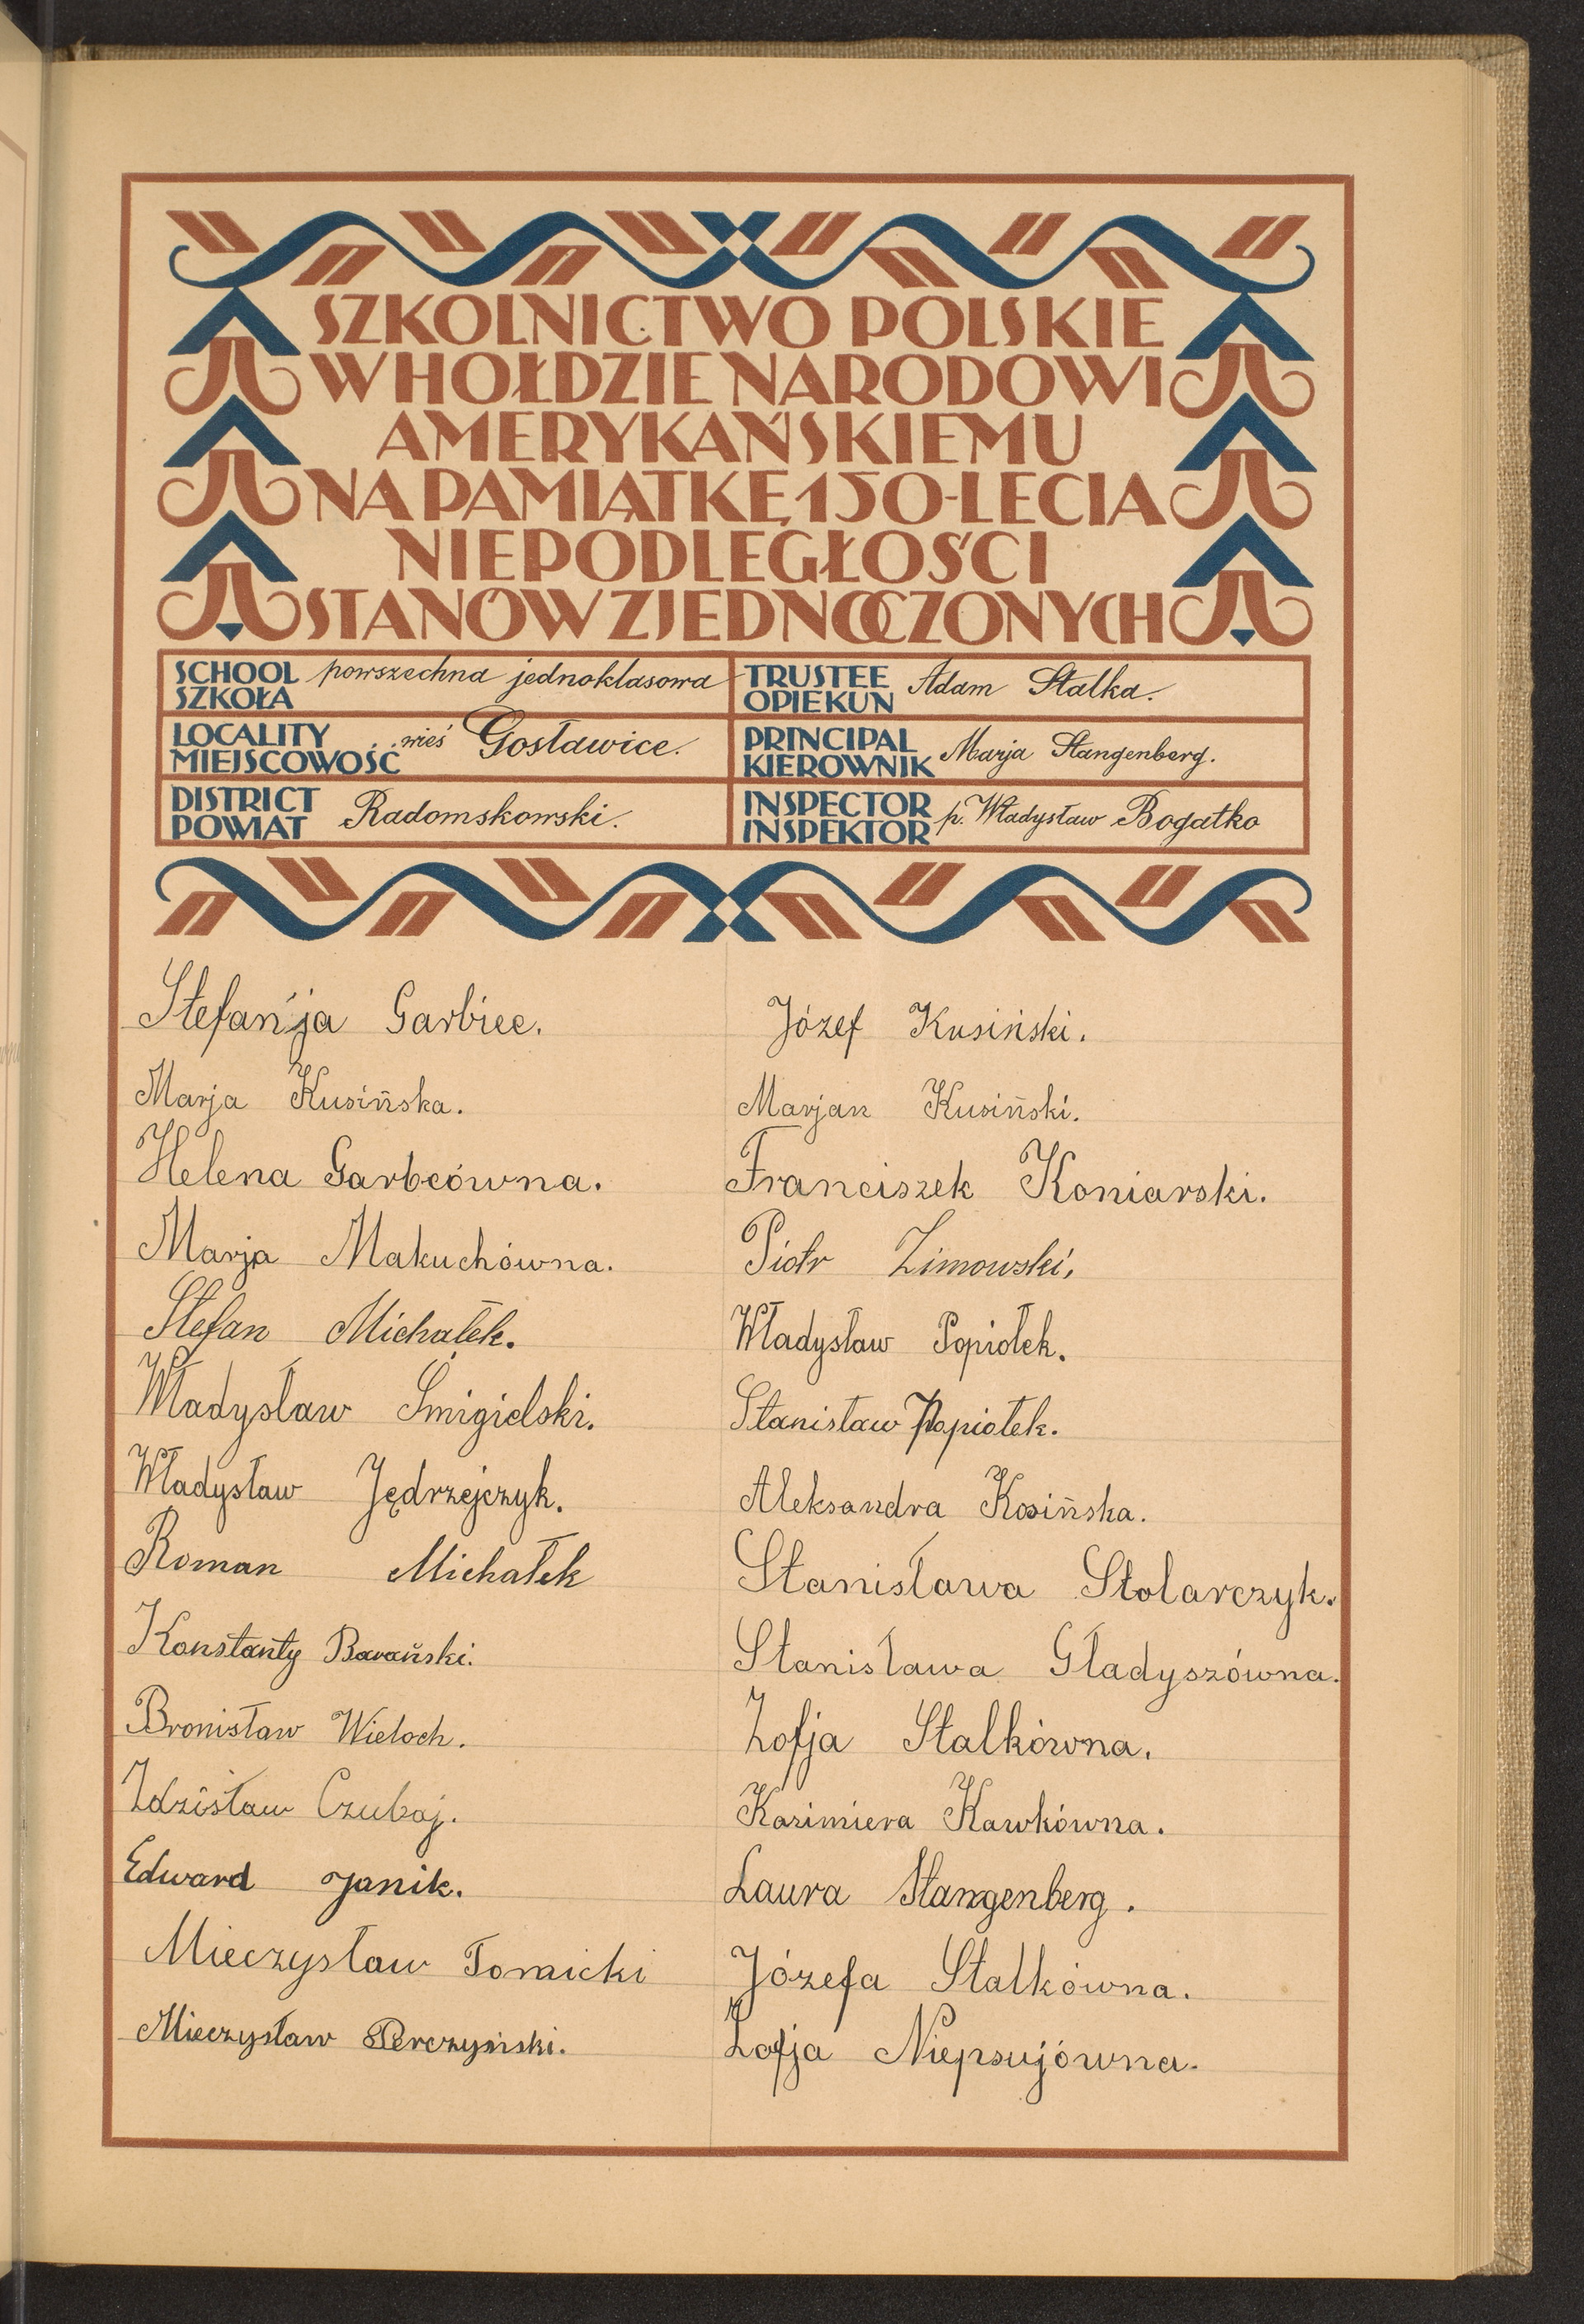 SZKOLNICTWO POLSKIE
W HOŁDZIE NARODOWI
AMERYKAŃSKIEMU
NA PAMIĄTKĘ 150-LECIA
NIEPODLEGŁOŚCI
STANÓW ZJEDNOCZONYCH
SCHOOL
SZKOŁA powszechna jednoklasowa
TRUSTEE
OPIEKUN Adam Stalka.
LOCALITY
MIEJSCOWOŚĆ wieś Gosławice.
PRINCIPAL
KIEROWNIK Marja Stangenberg.
DISTRICT
POWIAT Radomskowski.
INSPECTOR
INSPEKTOR p. Władysław Bogatko
Stefanja Garbiec.
Marja Kusińska.
Helena Garbcówna.
Marja Makuchówna.
Stefan Michałek.
Władysław Śmigielski.
Władysław Jędrzejczyk.
Roman Michałek
Konstanty Barański.
Bronisław Wieloch.
Zdzisław Czubaj.
Edward Janik.
Mieczysław Tomicki
Mieczysław Perczyński.
Józef Kusiński.
Marjan Kusiński.
Franciszek Koniarski.
Piotr Zimowski.
Władysław Popiołek.
Stanisław Popiołek.
Aleksandra Kosińska.
Stanisława Stolarczyk.
Stanisława Gładyszówna.
Zofja Stalkówna.
Kazimiera Kawkówna.
Laura Stangenberg.
Józefa Stalkówna.
Zofja Niepsujówna.